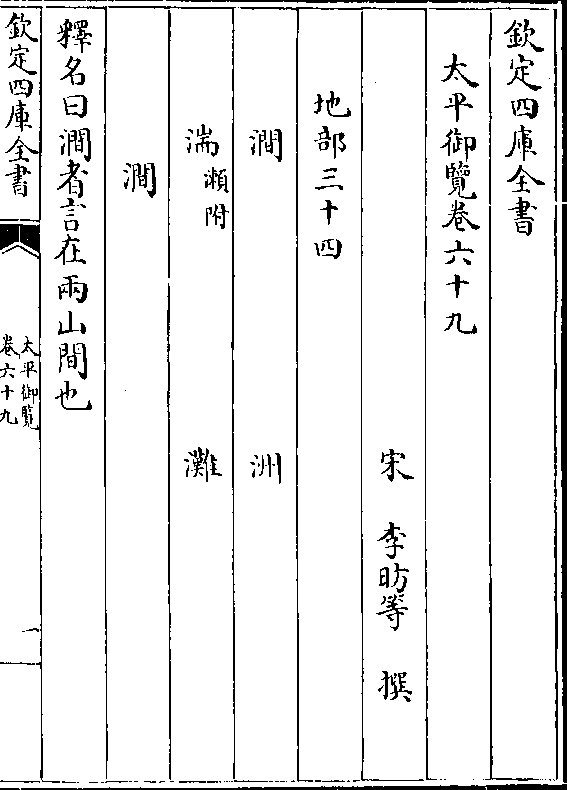 欽定四庫全書
太平御覽卷六十九
宋 李昉等 撰
地部三十四
澗 洲
湍瀨附 灘
澗
釋名曰澗者言在兩山間也
欽定四庫全書
太平御覽
卷六十九
一